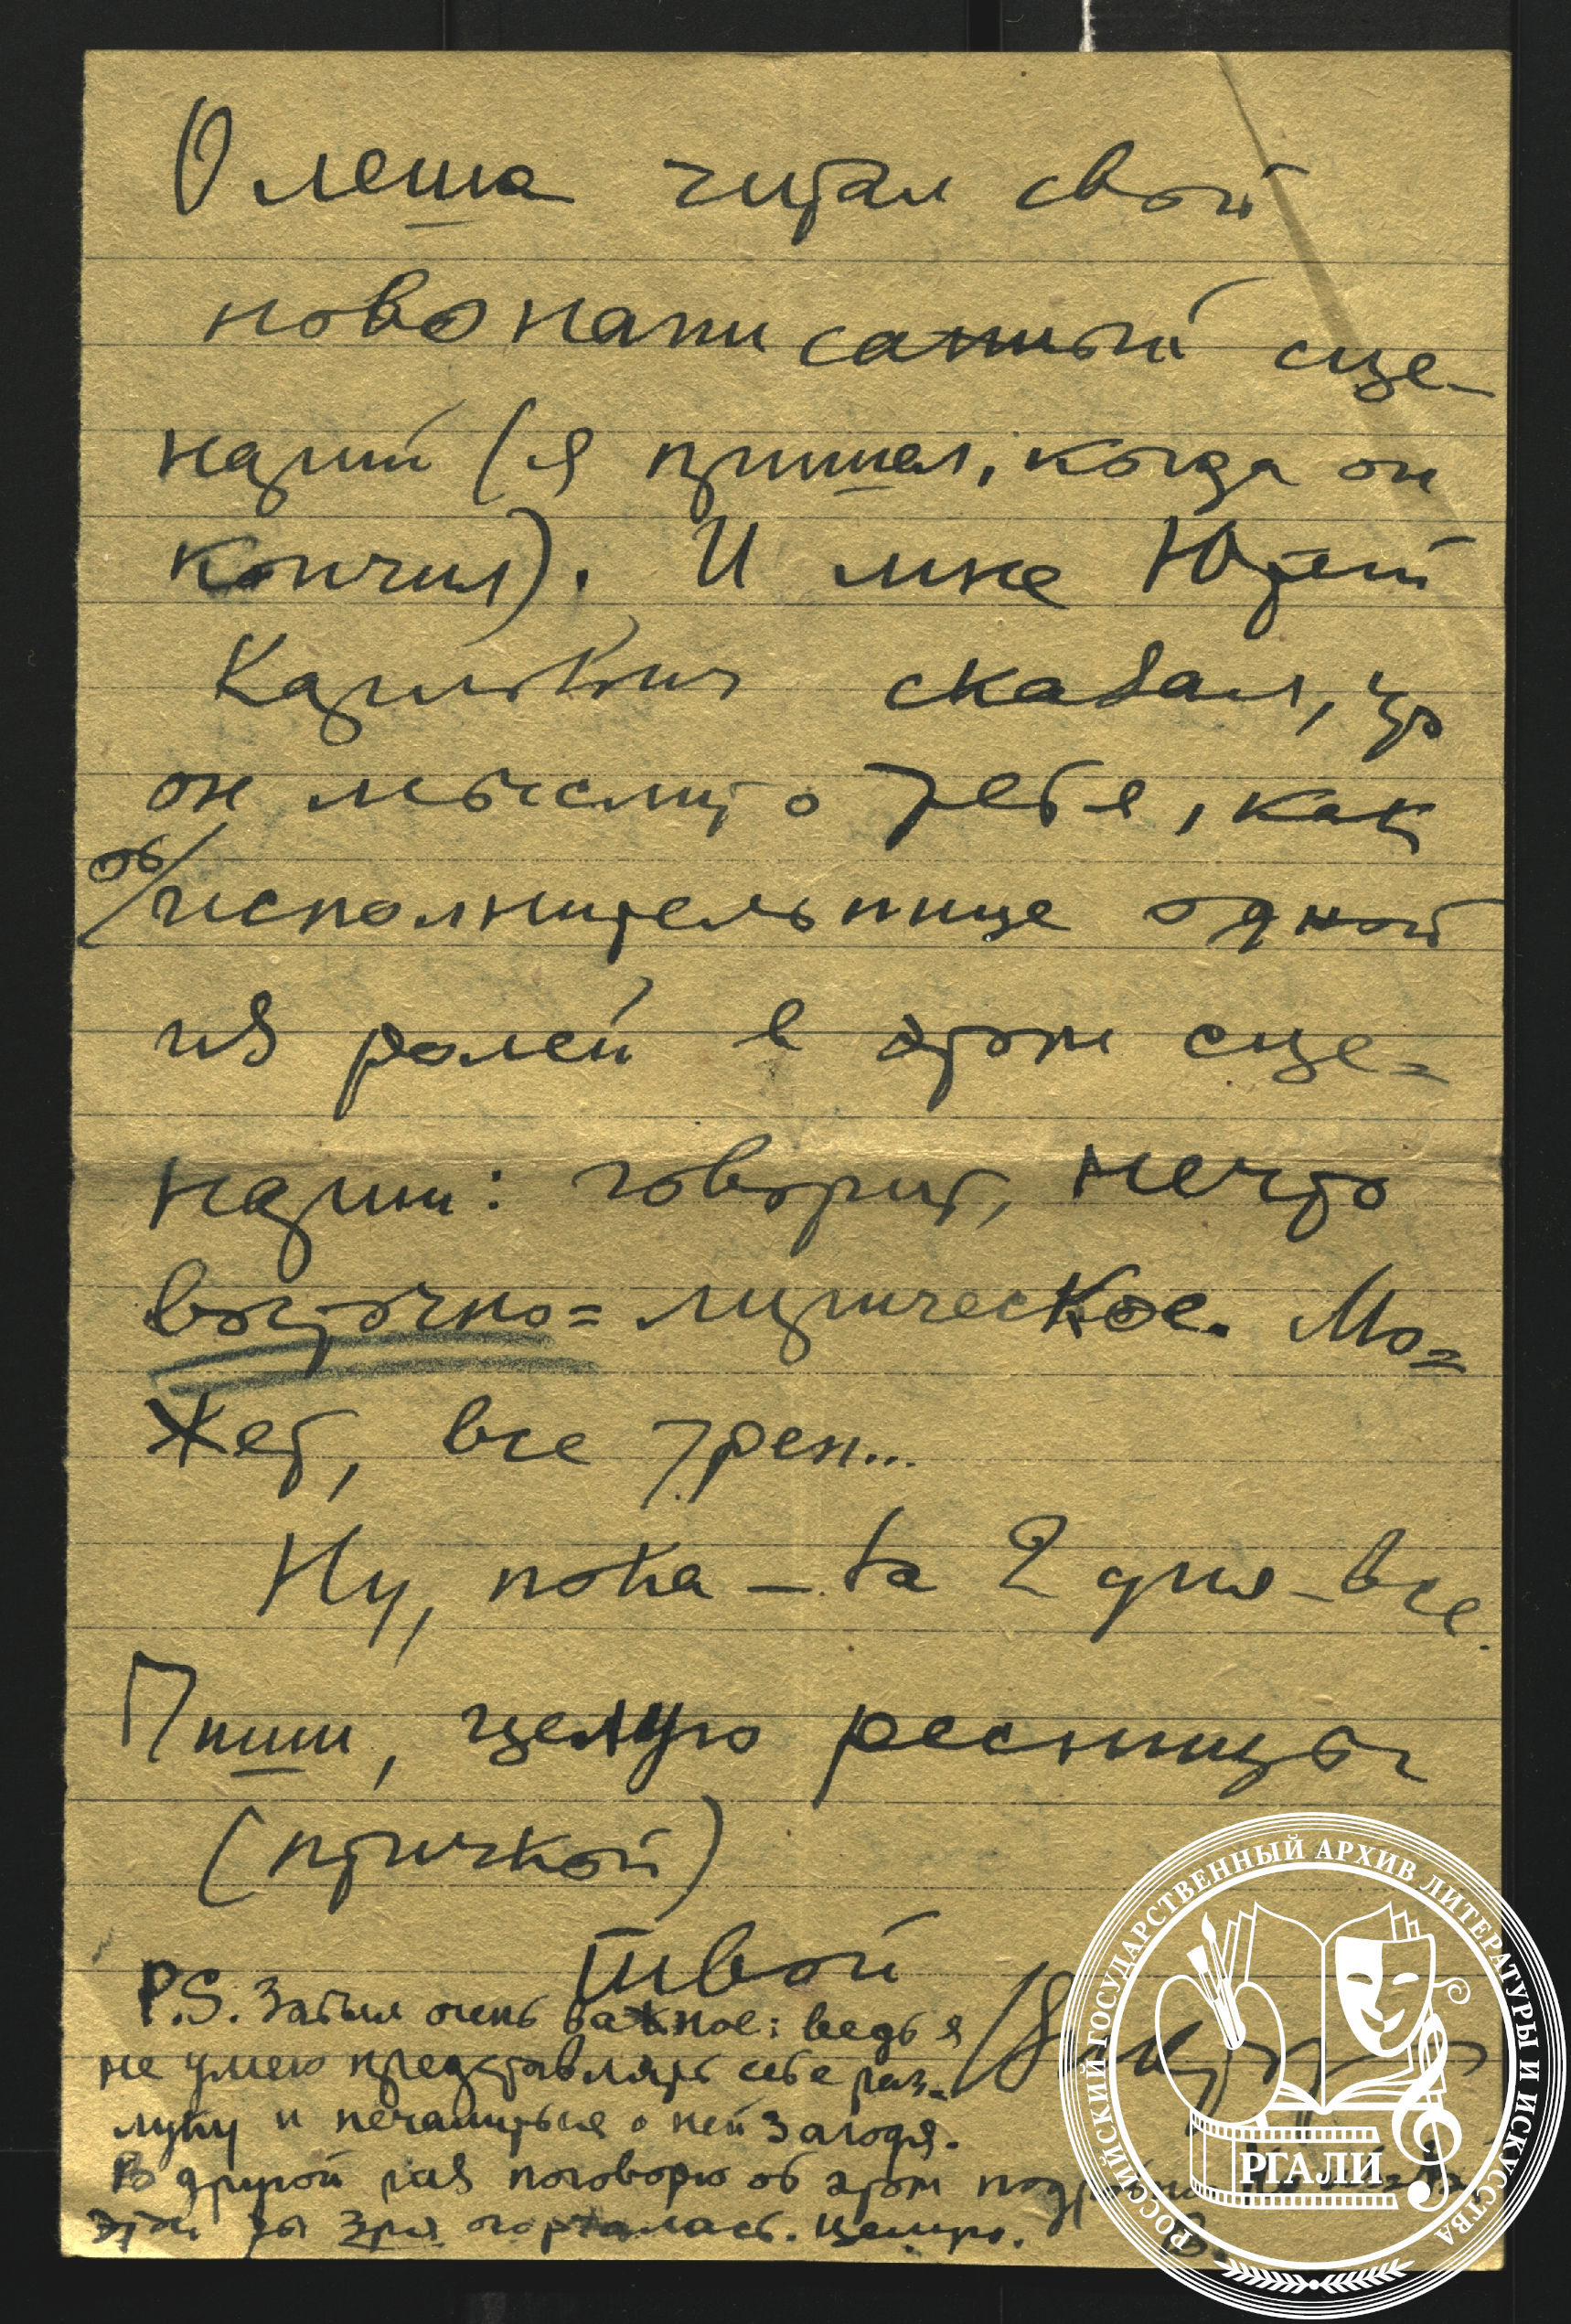 Олеша читал свой
новонаписанный сце-
нарий (я пришел, когда он
кончил). И мне Юрий
Карлович сказал, что
он мыслит о тебе, как
об/исполнительнице одной
из ролей в этом сце=
нарии: говорит, нечто
восточно=лирическое. Мо=
жет, все треп...
Ну, пока – за 2 дня – все.
Пиши, целую ресницы
(птичкой)
Твой
P.S. Забыл очень важное: ведь я
не умею представлять себе раз=
луку и печалиться о ней загодя.
В другой раз поговорю об этом
ты зря огорчалась. Целую.
В.
РОССИЙСКИЙ ГОСУДАРСТВЕННЫЙ АРХИВ ЛИТЕРАТУРЫ И ИСКУССТВА
РГАЛИ